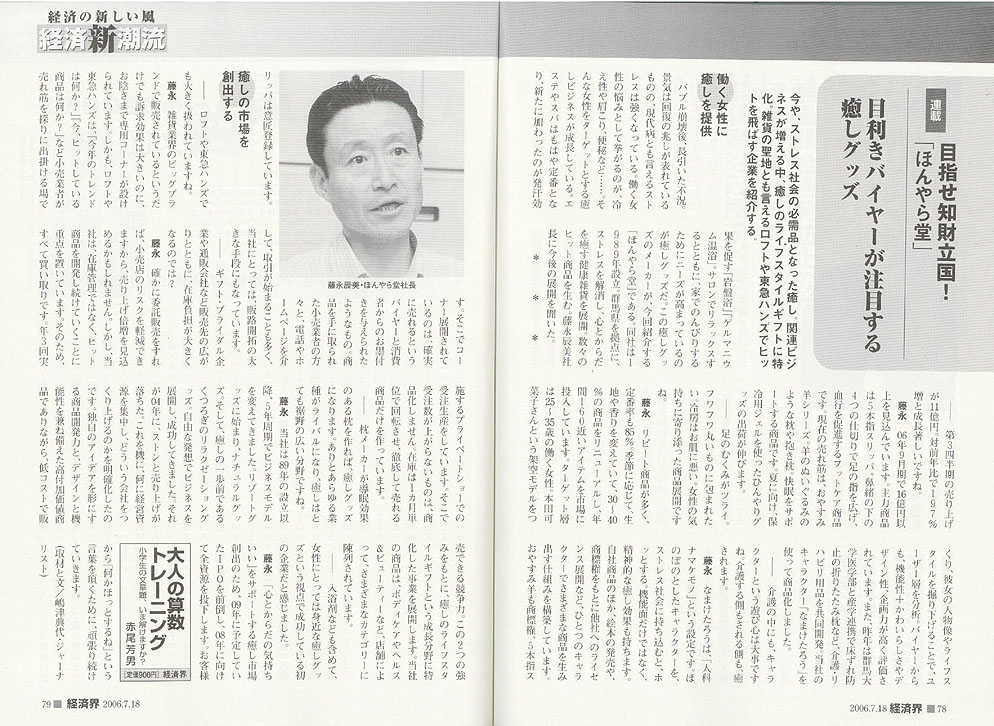 連載
目指せ知財立国!
「ほんやら堂」
目利きバイヤーが注目する
癒しグッズ
今や、ストレス社会の必需品となった癒し。関連ビジ
ネスが増える中、癒しのライフスタイルギフトに特
化。雑貨の聖地とも言えるロフトや東急ハンズでヒッ
トを飛ばす企業を紹介する。
働く女性に
癒しを提供
バブル崩壊後、長引いた不況。
景気は回復の兆しが表れている
ものの、現代病とも言えるスト
レスは強くなっている。働く女
性の悩みとして挙がるのが、冷
え性や肩こり、便秘など……。そ
んな女性をターゲットとする癒
しビジネスが成長している。エ
ステやスパはもはや定番とな
り、新たに加わったのが発汗効
果を促す「岩盤浴」「ゲルマニウ
ム温浴」。サロンでリラックスす
るとともに家でのんびりする
ためにニーズが高まっているの
が癒しグッズだ。この癒しグッ
ズのメーカーが、今回紹介する
「ほんやら堂」である。同社は1
989年設立。群馬県を拠点に、
ストレスを解消し、心とからだ
を癒す健康雑貨を開発。数々の
ヒット商品を生む。藤永辰美社
長に今後の展開を聞いた。
* * *
── 第3四半期の売り上げ
が11億円。対前年比で197%
増と成長著しいですね。
藤永 06年9月期で16億円以
上を見込んでいます。主力商品
は5本指スリッパ。鼻緒の下の
4つの仕切りで足の指を広げ、
血行を促進するフットケア商品
です。現在の売れ筋は、おやすみ
羊シリーズ。羊のぬいぐるみの
ような枕や抱き枕。快眠をサポ
ートする商品です。夏に向け、保
冷用ジェルを使ったひんやりグ
ッズの出荷が伸びます。
── 足のむくみがツライ、
フワフワ丸いものに包まれた
い、冷房はお肌に悪い。女性の気
持ちに寄り添った商品展開です
ね。
藤永 リピート商品が多く、
定番率も85%。季節に応じて、生
地や香りを変えていて、30〜40
%の商品をリニューアルし、年
間160近いアイテムを市場に
投入しています。ターゲット層
は25〜35歳の働く女性。本田可
菜子さんという架空モデルをつ
くり、彼女の人物像やライフス
タイルを掘り下げることで、ユ
ーザー層を分析。バイヤーから
も、機能性+かわいらしさやデ
ザイン性、企画力が高く評価さ
れています。また、昨年は群馬大
学医学部と産学連携で床ずれ防
止のたたみたまる枕など、介護・リ
ハビリ用品を共同開発。当社の
キャラクター「なまけたろう」を
使って商品化しました。
── 介護の中にも、キャラ
クターという遊び心は大事です
ね。介護する側もされる側も、癒
されます。
藤永 なまけたろうは、「人科
ナマケモノ」という設定です。ほ
のぼのとしたキャラクターを、
ストレス社会に持ち込む、ホ
ッとする。機能面だけではなく、
精神的な癒し効果も持ちます。
自社商品のほか、絵本の発売や、
商標権をもとに他社へのライセ
ンス展開など、ひとつのキャラ
クターでさまざまな商品を生み
出す仕組みを構築しています。
おやすみ羊も商標権、5本指ス
2006.7.18 経済界 ■ 78
経済の新しい風
経済新潮流
リッパは意匠登録しています。
癒しの市場を
創出する
── ロフトや東急ハンズで
も大きく扱われていますね。
藤永 雑貨業界のビッグブラ
ンドで販売されているというだ
けでも訴求効果は大きいのに、
お陰さまで専用コーナーが設け
られています。しかも、ロフトや
東急ハンズは、「今年のトレンド
は何か?」「今、ヒットしている
商品は何か?」など小売業者が
売れ筋を探りに出掛ける場で
藤永辰美・ほんやら堂社長
す。そこでコー
ナー展開されて
いるのは、確実
に売れるという
バイヤーと消費
者からのお墨付
きを与えられた
ようなもの。商
品を手に取られ
た小売業者の方
々と、電話やホ
ームページを介
して、取引が始まることも多く、
当社にとっては、販路開拓の大
きな手段にもなっています。
── ギフト・ブライダル企
業や通販会社など販売先の広が
りとともに、在庫負担が大きく
なるのでは?
藤永 確かに委託販売をすれ
ば、小売店のリスクを軽減でき
ますから、売り上げ倍増を見込
めるかもしれません。しかし、当
社は、在庫管理ではなく、ヒット
商品を開発し続けていくことに
重点を置いています。そのため、
すべて買い取りです。年3回実
施するプライベートショーでの
受注生産をしています。そこで
受注数が上がらないものは、商
品化しません。在庫は一カ月単
位で回転させ、徹底して売れる
商品だけを作っています。
── 枕メーカーが導眠効果
のある枕を作れば、癒しグッズ
になります。ありとあらゆる業
種がライバルになり、癒しほと
ても裾野の広い分野ですね。
藤永 当社は89年の設立以
降、5年周期でビジネスモデル
を変えてきました。リゾートグ
ッズに始まり、ナチュラルグッ
ズ。そして、癒しの一歩前である
くつろぎのリラクゼーショング
ッズ。自由な発想でビジネスを
展開し、成功してきました。それ
が04年に、ストンと売り上げが
落ちた。これを機に、何に経営資
源を集中し、どういう会社をつ
くり上げるのかを明確化したの
です。独自のアイデアを形にす
る商品開発力と、デザインと機
能性を兼ね備えた高付加価値商
品でありながら、低コストで販
売できる競争力。この2つの強
みをもとに、癒しのライフスタ
イルギフトという成長分野に特
化した事業を展開します。当社
の商品は、ボディケアやヘルス
&ビューティーなど、店舗によ
って、さまざまなカテゴリーに
陳列されています。
── 入浴剤なども含めて、
女性にとっては身近な癒しグッ
ズという視点で成功している初
の企業だと感じました。
藤永 「心とからだの気持ち
いい」をサポートする癒し市場
創出のため、09年に予定してい
たIPOを前倒し、08年に向け
て全資源を投下します。お客様
から「何かほっとするね」という
言葉を頂くために、頑張り続け
ていきます。
(取材と文/嶋津典代・ジャーナ
リスト)
大人の算数
トレーニング
小学生の文章題、いま解けますか?
赤尾芳男
[定価900円] 経済界
79 ■ 経済界 2006.7.18